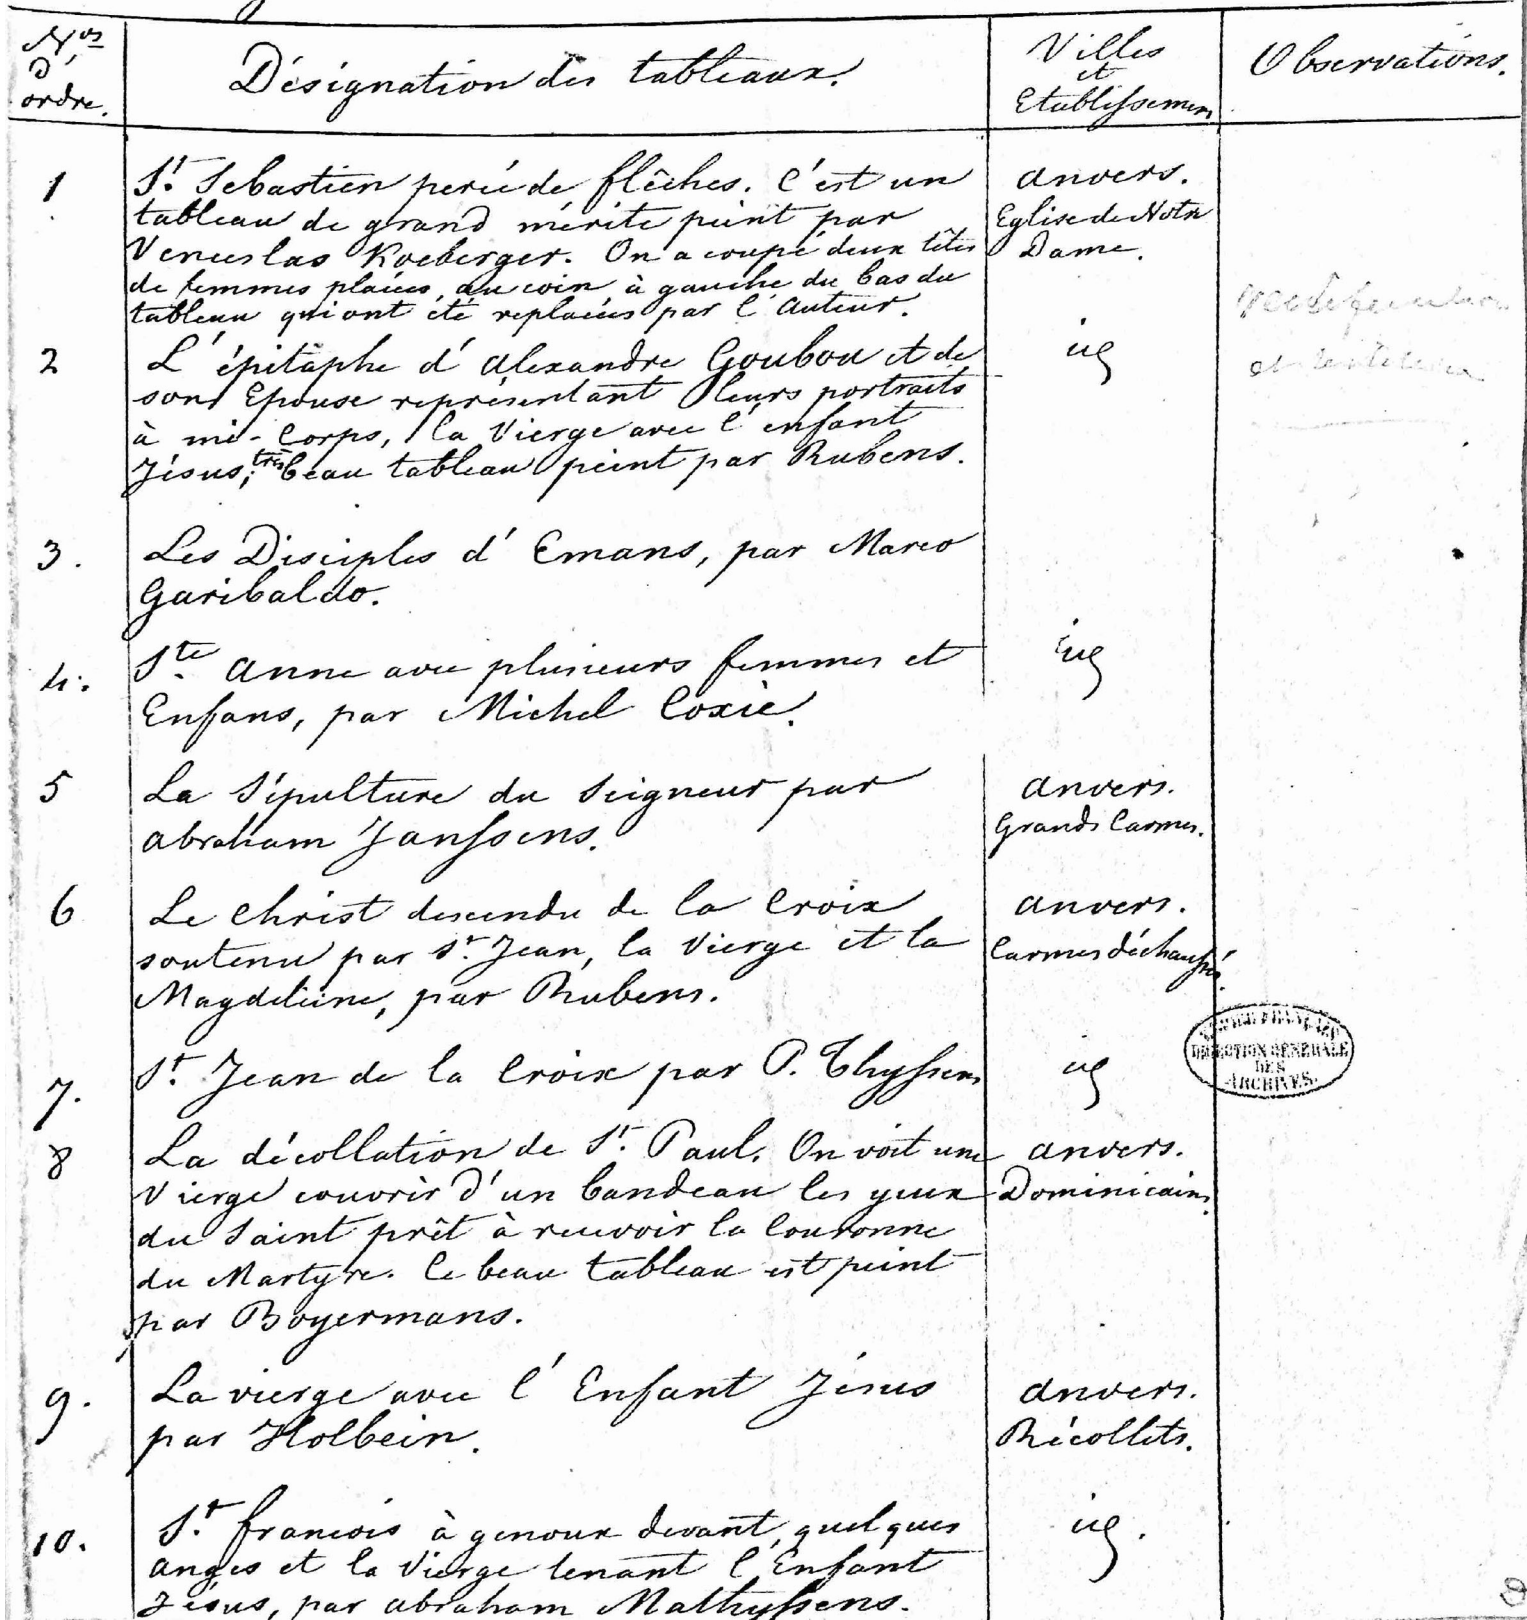 Nos d' ordre.
Désignation des tableaux.
Villes et Etablissemens
Observations.
1
St. Sebastien percé de flêches. C'est un
tableau de grand mérite peint par
Venceslas Koeberger. On a coupé deux têtes
de femmes placées, au coin à gauche du bas du
tableau qui ont été replacées par l'Auteur.
Anvers.
Eglise de Notre
Dame.
2
L'épitaphe d'Alexandre Goubou et de
son Epouse représentant leurs portraits
à mi-Corps, la Vierge avec l'enfant
Jésus; très beau tableau peint par Rubens.
3.
Les Disciples d'Emans, par Marco
Garibaldo.
4.
Ste. Anne avec plusieurs femmes et
Enfans, par Michel Coxie.
5
La Sépulture du Seigneur par
Abraham Janssens.
Anvers.
Grands Carmes.
6
Le Christ descendu de la Croix
soutenu par St. Jean, la Vierge et la
Magdeleine, par Rubens.
Anvers.
Carmes déchaussés.
7.
St. Jean de la Croix par P. Thyssens
EMPIRE FRANÇAIS
DIRECTION GENERALE
DES
ARCHIVES.
8
La décollation de St. Paul. On voit une
Vierge couvrir d'un bandeau les yeux
du Saint prêt à recevoir la Couronne
du Martyre. Ce beau tableau est peint
par Boyermans.
Anvers.
Dominicains.
9.
La vierge avec l'Enfant Jésus
par Holbein.
Anvers.
Récollets.
10.
St. francois à genoux devant, quelques
anges et la Vierge tenant l'Enfant
Jésus, par Abraham Mathyssens.